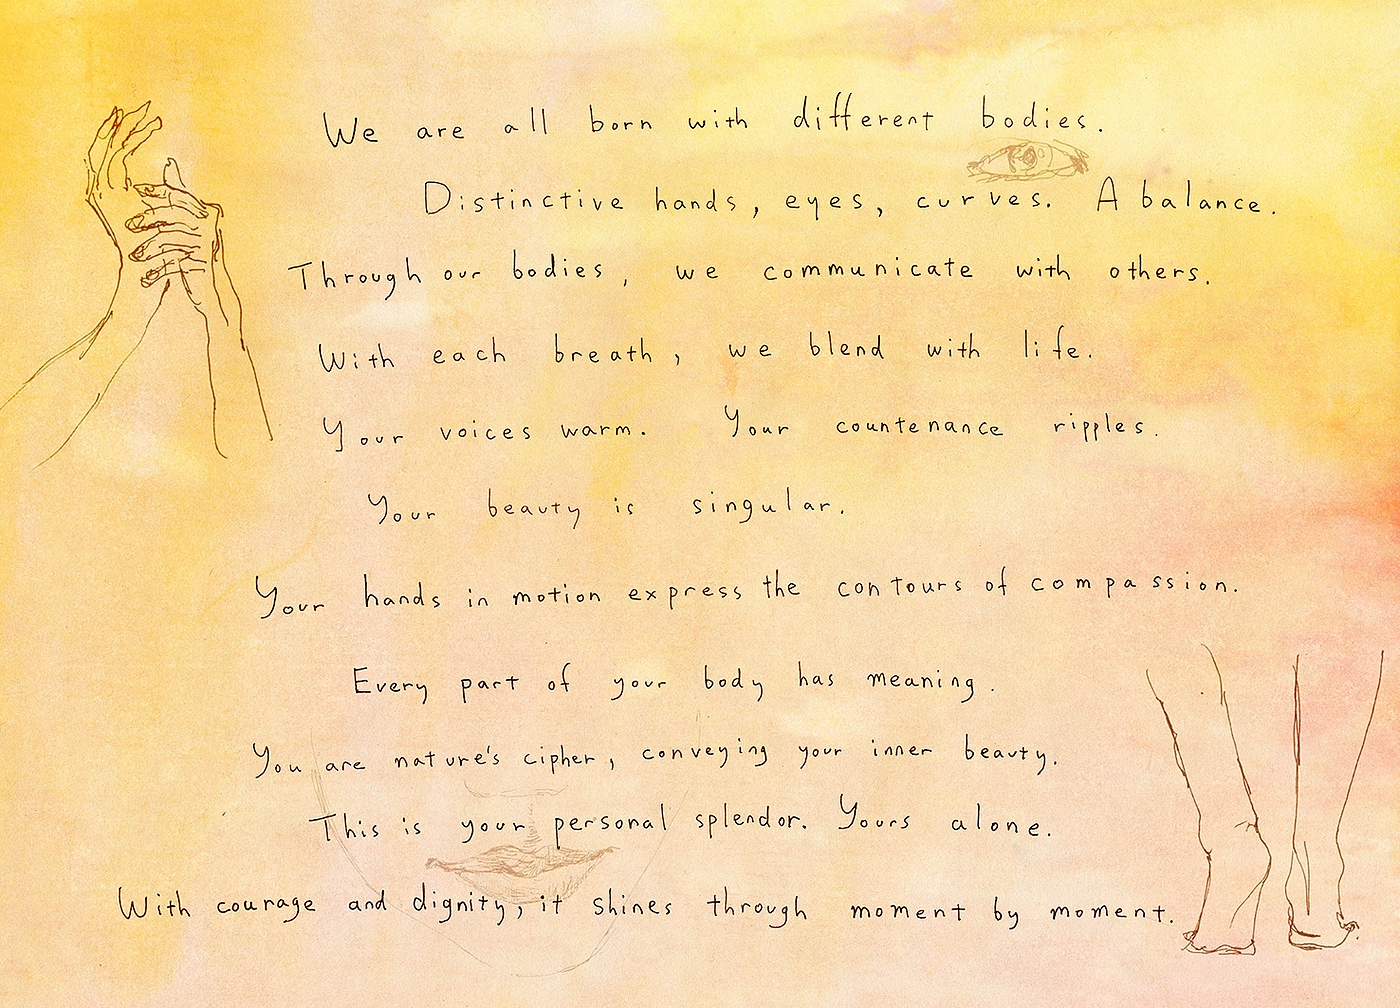 We are all born with different bodies.
Distinctive hands, eyes, curves. A balance.
Through our bodies, we communicate with others.
With each breath, we blend with life.
Your voices warm. Your countenance ripples.
Your beauty is singular.
Your hands in motion express the contours of compassion.
Every part of your body has meaning.
You are nature's cipher, conveying your inner beauty.
This is your personal splendor. Yours alone.
With courage and dignity, it shines through moment by moment.